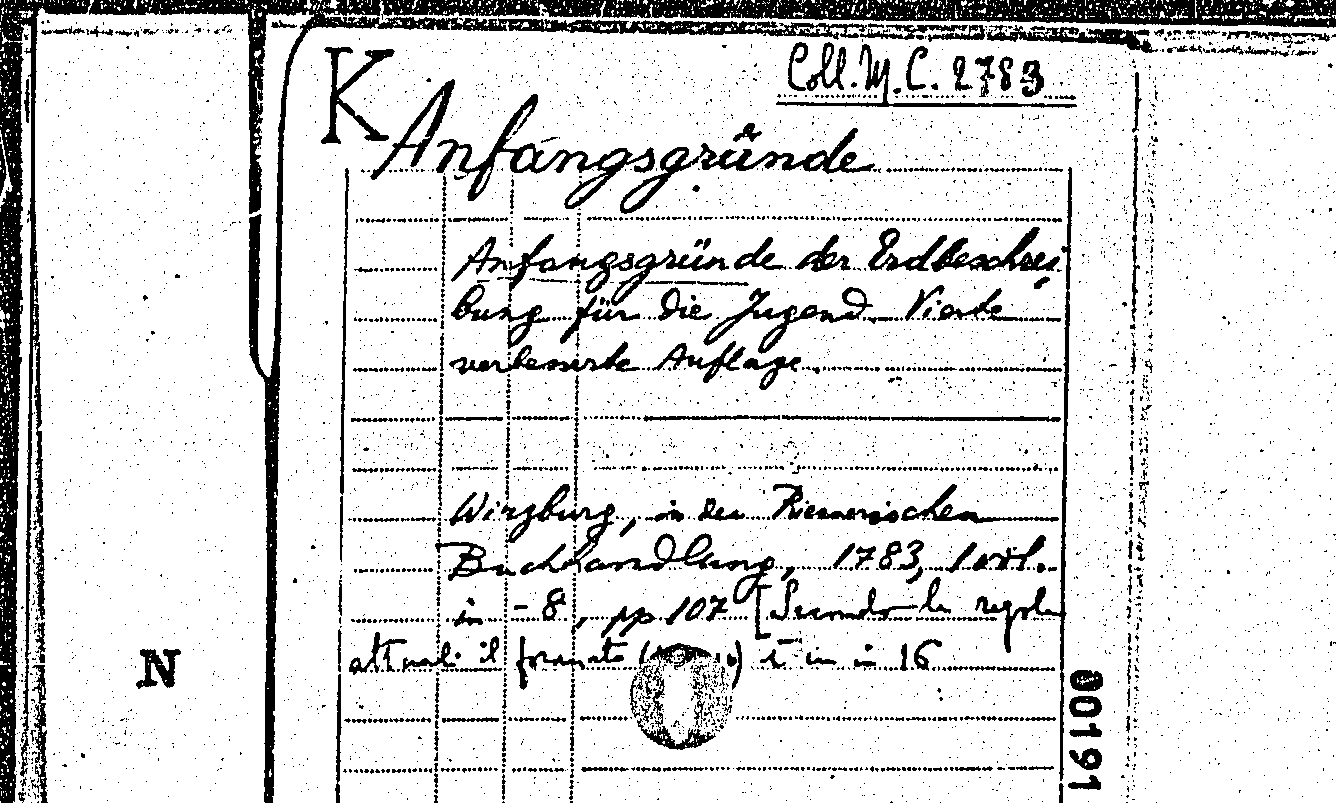 K
Coll. M. C. 2783
Anfangsgründe
Anfangsgründe der Erdbeschrei-
bung für die Jugend. Vierte
verbesserte Auflage.
Wirzburg, in der Riennerischen
Buchhandlung, 1783, 1 vol.
in - 8, pp 107 [Secondo le regole
attuali il formato è in 16
N
00191